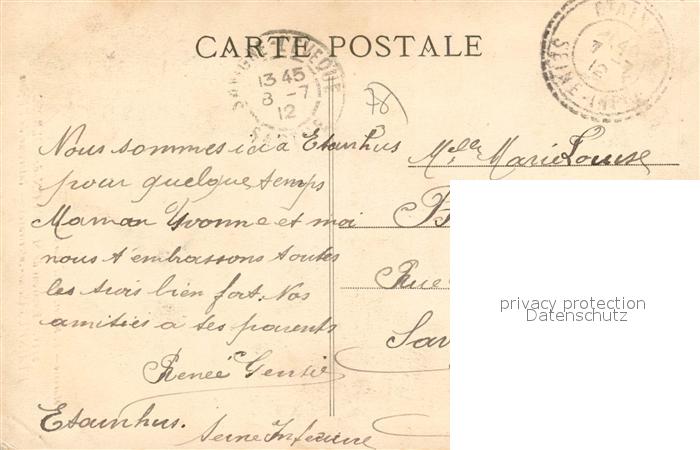 CARTE POSTALE
SAVIGNE-L'EVEQUE
13 45
8 -7
12
SEINE-INFRE
7 -7
12
78
Nous sommes ici à Etainhus
pour quelque temps
Maman Yvonne et moi
nous t'embrassons toutes
les trois bien fort. Nos
amitiés à tes parents
Renée
Etainhus.
Seine Inférieure
Melle Marie Louise
Rue
Sav
privacy protection
Datenschutz